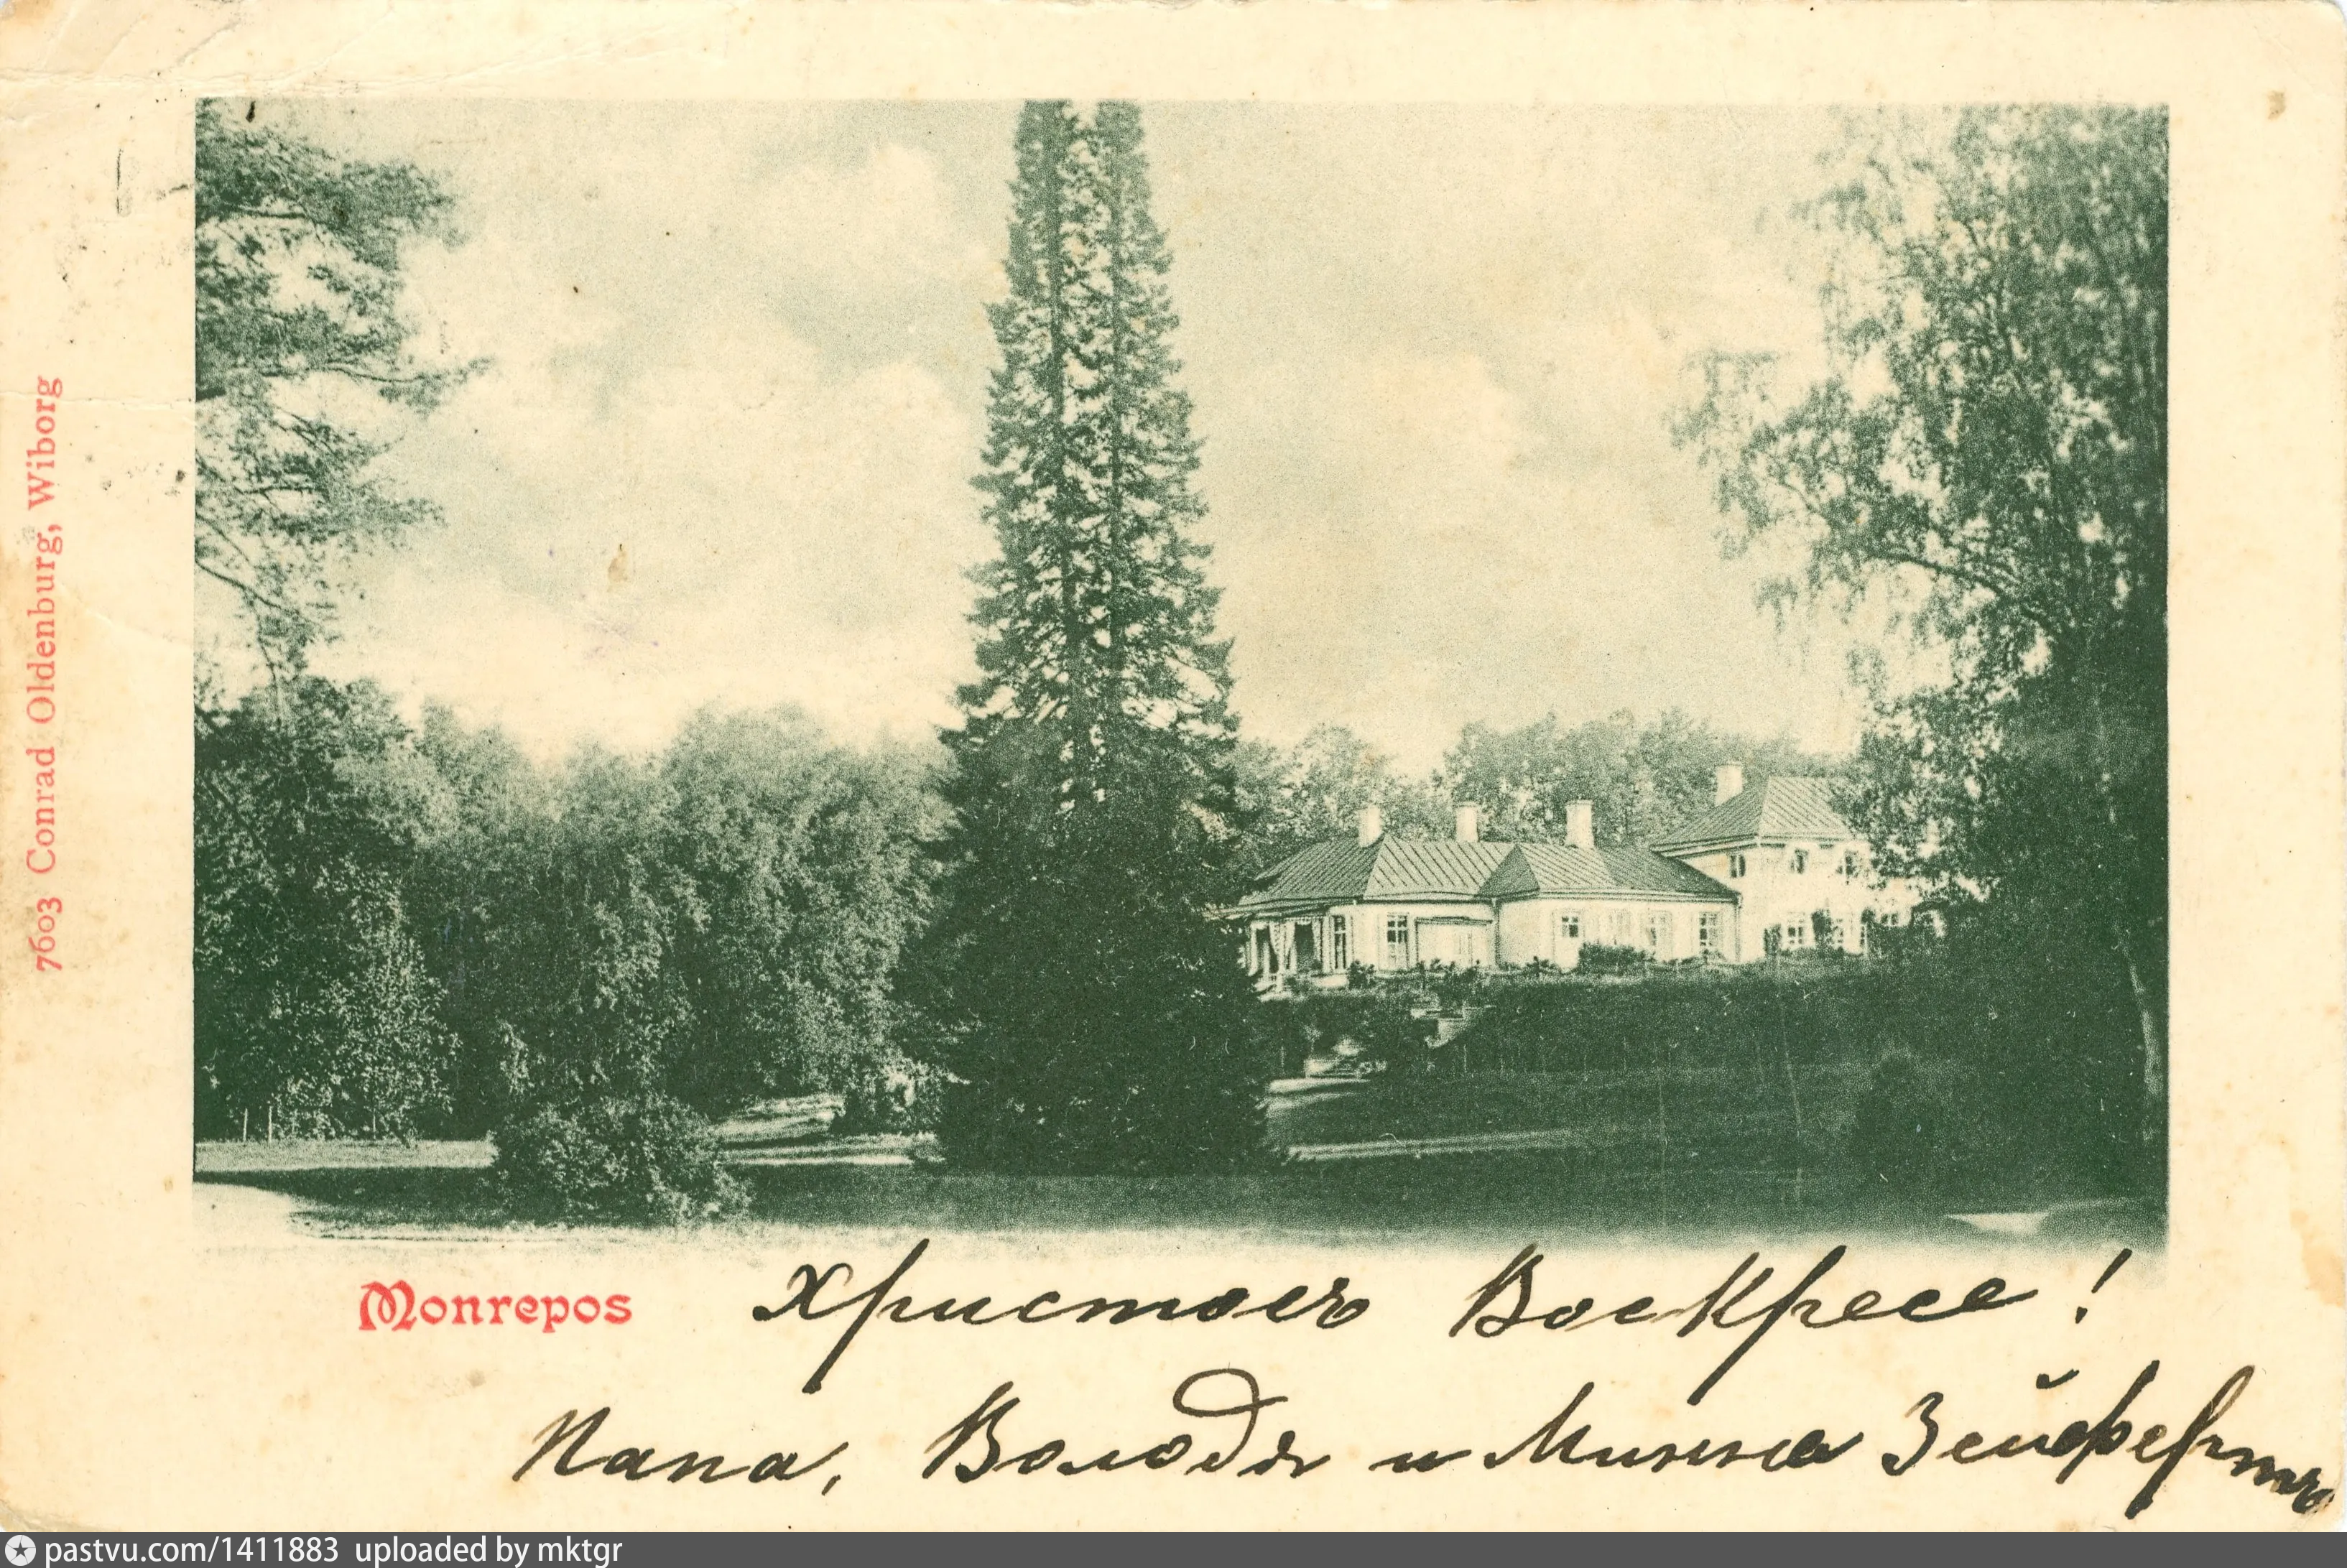 7603 Conrad Oldenburg, Wiborg
Monrepos
Христосъ Воскресе!
Папа, Володя и Минна Зейфертъ
pastvu.com/1411883 uploaded by mktgr